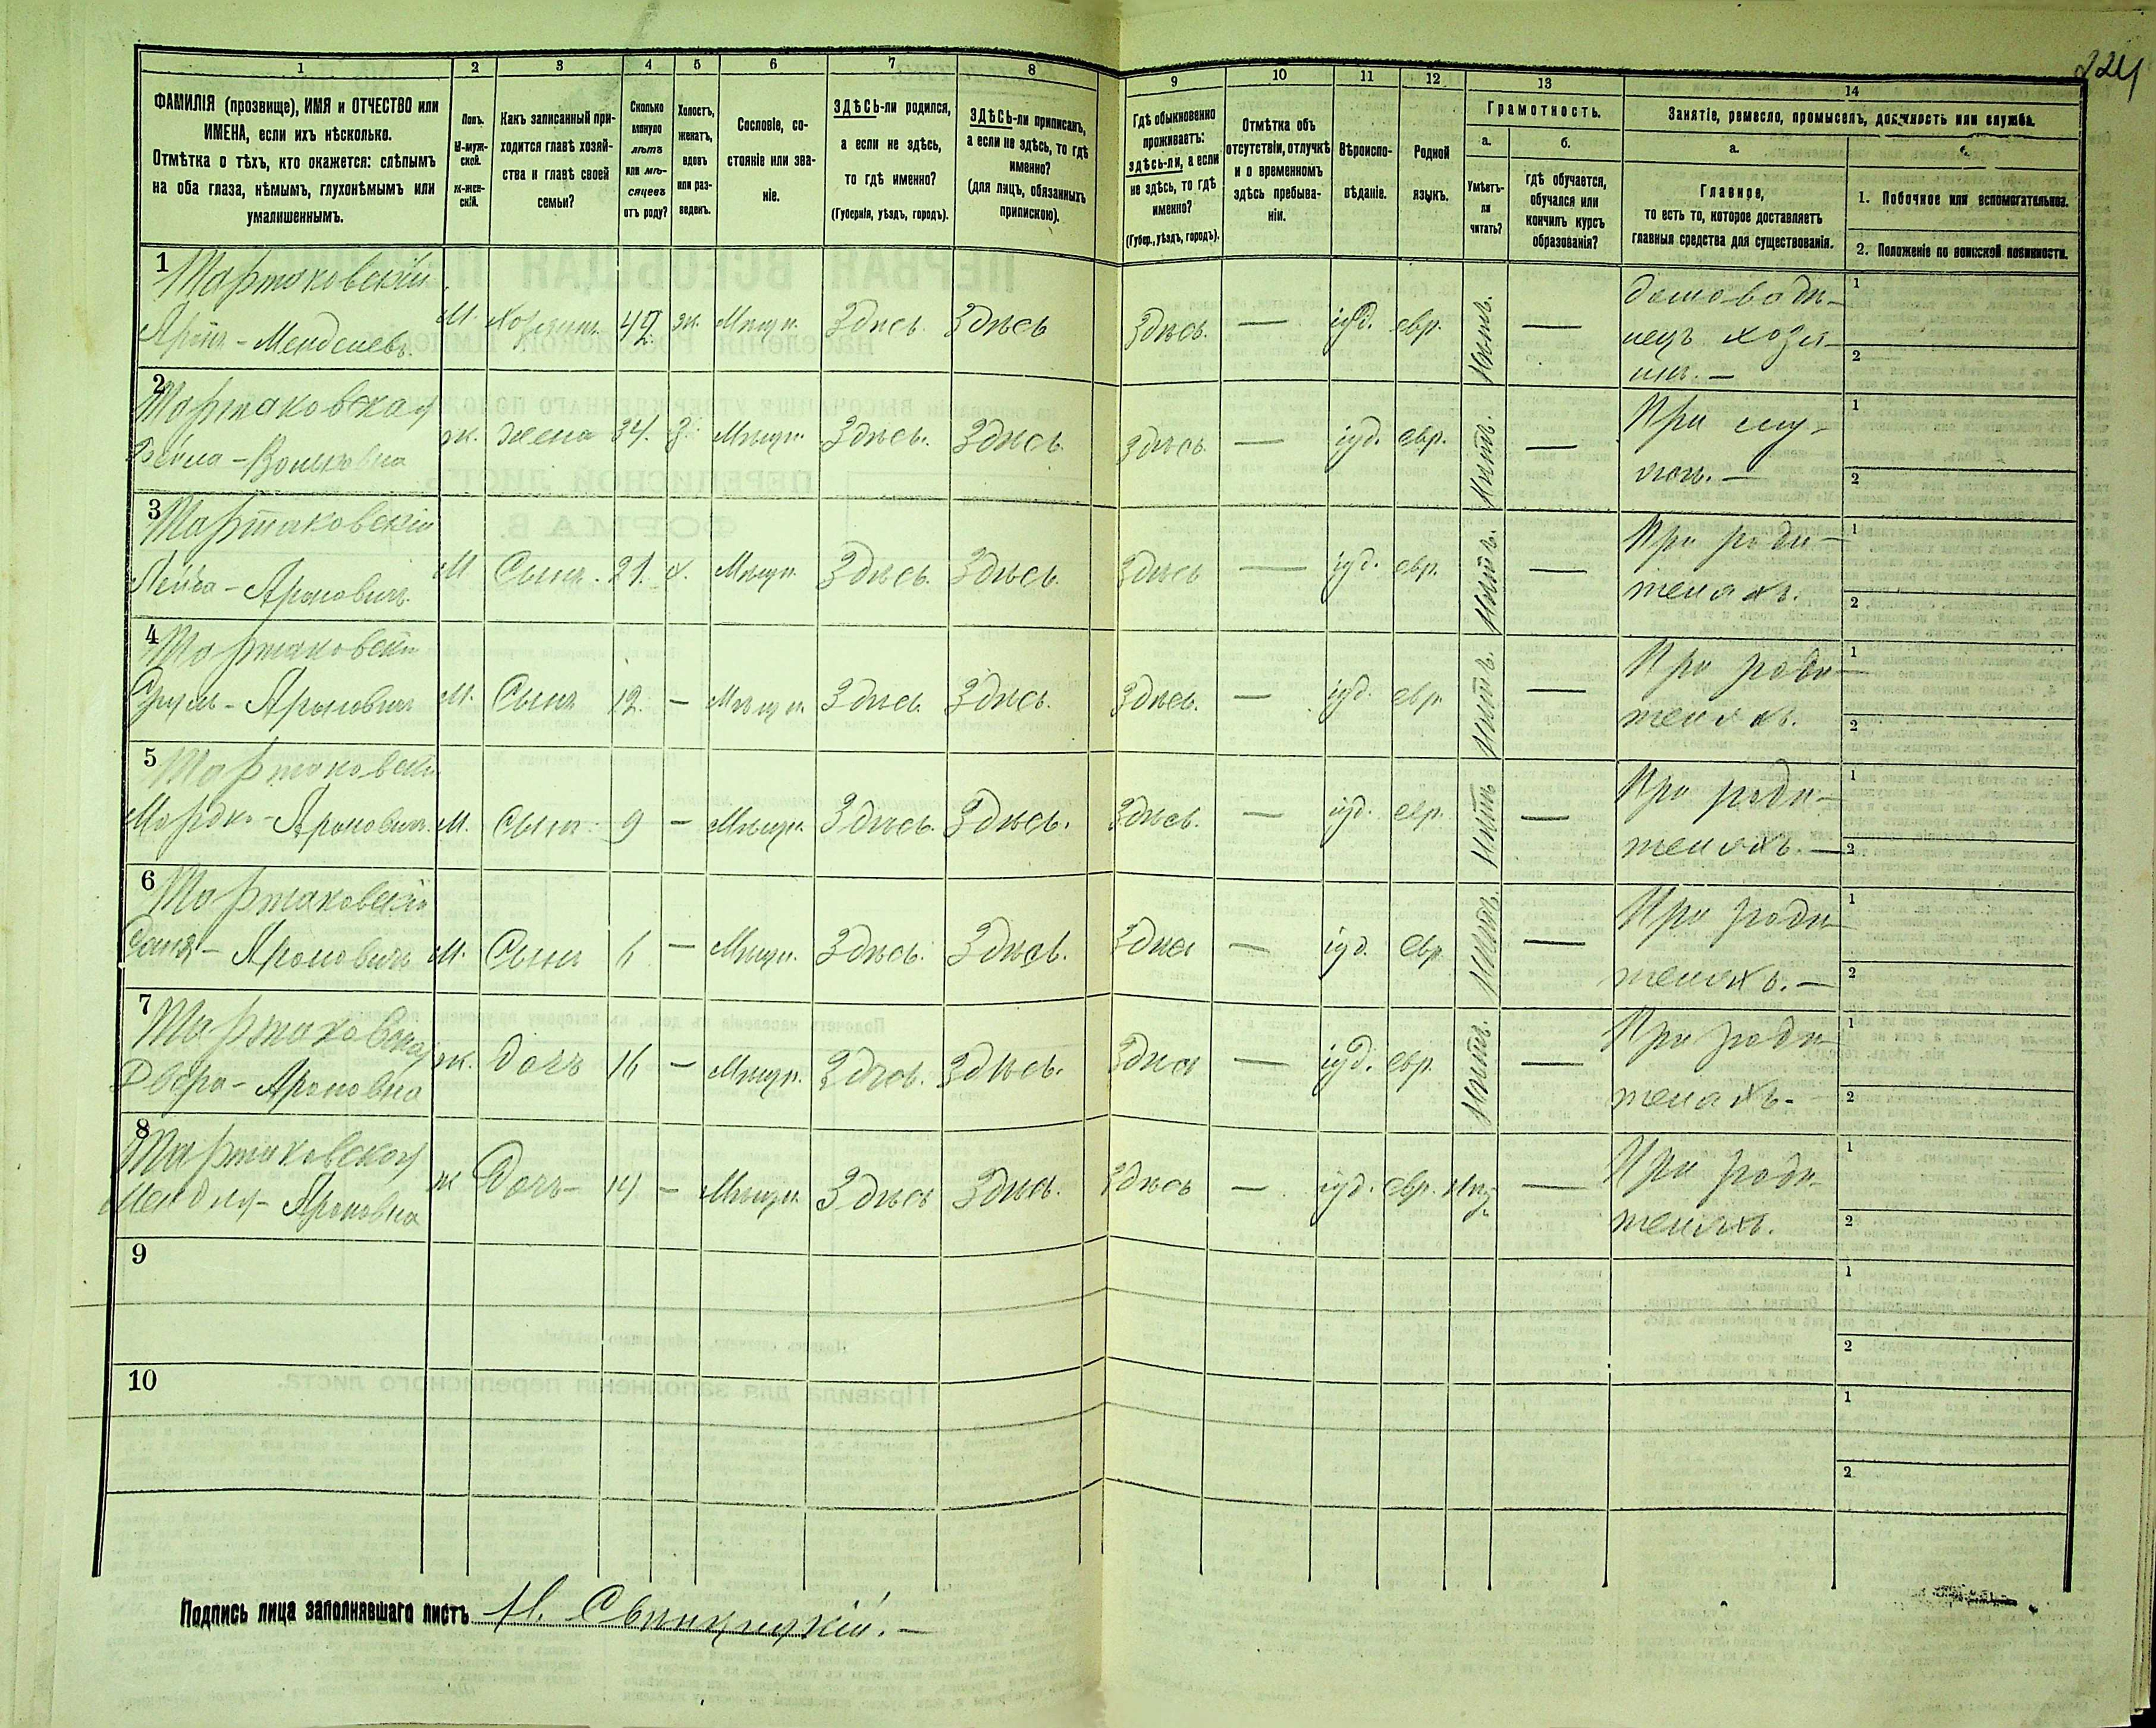 224
1 2 3 4 5 6 7 8 9 10 11 12 13 14
ФАМИЛІЯ (прозвище), ИМЯ и ОТЧЕСТВО или ИМЕНА, если ихъ нѣсколько.
Отмѣтка о тѣхъ, кто окажется: слѣпымъ на оба глаза, нѣмымъ, глухонѣмымъ или умалишеннымъ.
Полъ. М-мужской. ж-женскій.
Какъ записанный приходится главѣ хозяйства и главѣ своей семьи?
Сколько минуло лѣтъ или мѣсяцевъ отъ роду?
Холостъ, женатъ, вдовъ или разведенъ.
Сословіе, состояніе или званіе.
ЗДѢСЬ-ли родился, а если не здѣсь, то гдѣ именно?
(Губернія, уѣздъ, городъ).
ЗДѢСЬ-ли приписанъ, а если не здѣсь, то гдѣ именно?
(для лицъ, обязанныхъ припискою).
Гдѣ обыкновенно проживаетъ: здѣсь-ли, а если не здѣсь, то гдѣ именно?
(Губер., уѣздъ, городъ).
Отмѣтка объ отсутствіи, отлучкѣ и о временномъ здѣсь пребываніи.
Вѣроисповѣданіе.
Родной языкъ.
Грамотность.
а. Умѣетъ-ли читать?
б. гдѣ обучается, обучался или кончилъ курсъ образованія?
Занятіе, ремесло, промыселъ, должность или служба.
а. Главное, то есть то, которое доставляетъ главныя средства для существованія.
1. Побочное или вспомогательное.
2. Положеніе по воинской повинности.
1 Тартаковскій Аронъ - Менделевъ. М. Хозяинъ. ж. Мѣщан. Здѣсь Здѣсь Здѣсь. — іуд. евр. — домовладѣлецъ хозяинъ. — 1 2
2 Тартаковская Бейла - ж. жена 34. З. Мѣщан. Здѣсь. Здѣсь Здѣсь — іуд. евр. Нѣтъ. — При — 1 2
3 Тартаковскій Лейба - Ароновичъ. М Сынъ. 21. х. Мѣщан. Здѣсь. Здѣсь. Здѣсь — іуд. евр. Нѣтъ. — При родителяхъ. 1 2
4 Тартаковскій Сруль - Ароновичъ М. Сынъ 12. — Мѣщан. Здѣсь Здѣсь. Здѣсь. — іуд. евр. Нѣтъ. — При родителяхъ. 1 2
5 Тартаковскій Мордко - Ароновичъ. М. Сынъ. 9 — Мѣщан. Здѣсь. Здѣсь. Здѣсь. — іуд. евр. Нѣтъ — При родителяхъ. — 1 2
6 Тартаковскій Ароновичъ М. Сынъ 6 — Мѣщан. Здѣсь. Здѣсь. Здѣсь — іуд. евр. Нѣтъ. — При родителяхъ. — 1 2
7 Тартаковская Двойра - Ароновна ж. дочь 16 — Мѣщан. Здѣсь. Здѣсь. Здѣсь — іуд. евр. Нѣтъ. — При родителяхъ. - 1 2
8 Тартаковская Ароновна ж Дочь - 14 — Мѣщан. Здѣсь Здѣсь. Здѣсь — іуд. евр. — При родителяхъ. 1 2
9 1 2
10 1 2
Подпись лица заполнявшаго листъ